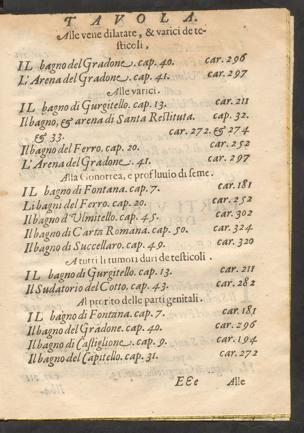 TAVOLA.
Alle vene dilatate, & varici de te-
sticoli,
IL bagno del Gradone. cap. 40. car. 296
L'Arena del Gradone. cap. 41. car. 297
Alle varici.
IL bagno di Gurgitello. cap. 13. car. 211
Il bagno, & arena di Santa Restituta. cap. 32.
& 33. car. 272. & 274
Il bagno del Ferro. cap. 20. car. 252
L'Arena del Gradone. 41. car. 297
Alla Gonorrea, e profluuio di seme.
IL bagno di Fontana. cap. 7. car. 181
Li bagni del Ferro. cap. 20. car. 252
Il bagno d'Vlmitello. cap. 45. car. 302
Il bagno di Carta Romana. cap. 50. car. 324
Il bagno di Succellaro. cap. 49. car. 320
A tutti li tumori duri de testicoli.
IL bagno di Gurgitello. cap. 13. car. 211
Il Sudatorio del Cotto. cap. 43. car. 282
Al prorito delle parti genitali.
IL bagno di Fontana. cap. 7. car. 181
Il bagno del Gradone. cap. 40. car. 296
Il bagno di Castiglione. cap. 9. car. 194
Il bagno del Capitello. cap. 31. car. 272
EEe Alle